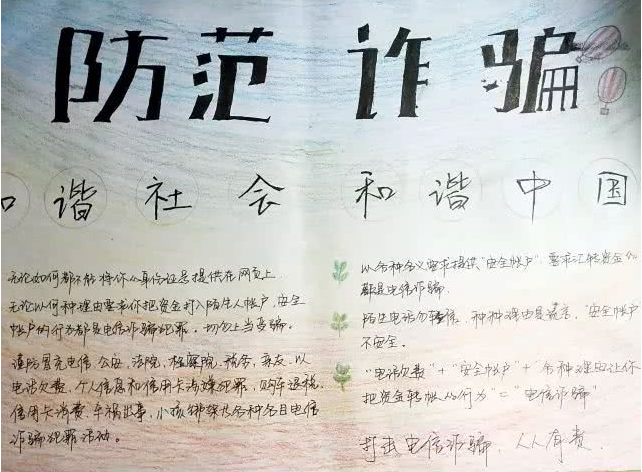 防范诈骗
和谐社会 和谐中国
无论如何都不能将你的身份证号提供在网页上
无论以何种理由要求你把资金打入陌生人帐户,安全
帐户的行为都是电信诈骗犯罪。切勿上当受骗。
谨防冒充电信、公安、法院、检察院、税务、亲友、以
电话欠费、个人信息和信用卡涉嫌犯罪,购车退税、
信用卡消费、车祸出事、小孩绑架为各种名目电信
诈骗犯罪活动。
以各种名义要求提供"安全帐户",要求汇转资金
都是电信诈骗
陌生电话勿轻信,种种理由是谎言,"安全帐户"
不安全。
"电话欠费"+"安全帐户"+"各种理由让你
把资金转帐的行为"="电信诈骗"
打击电信诈骗,人人有责